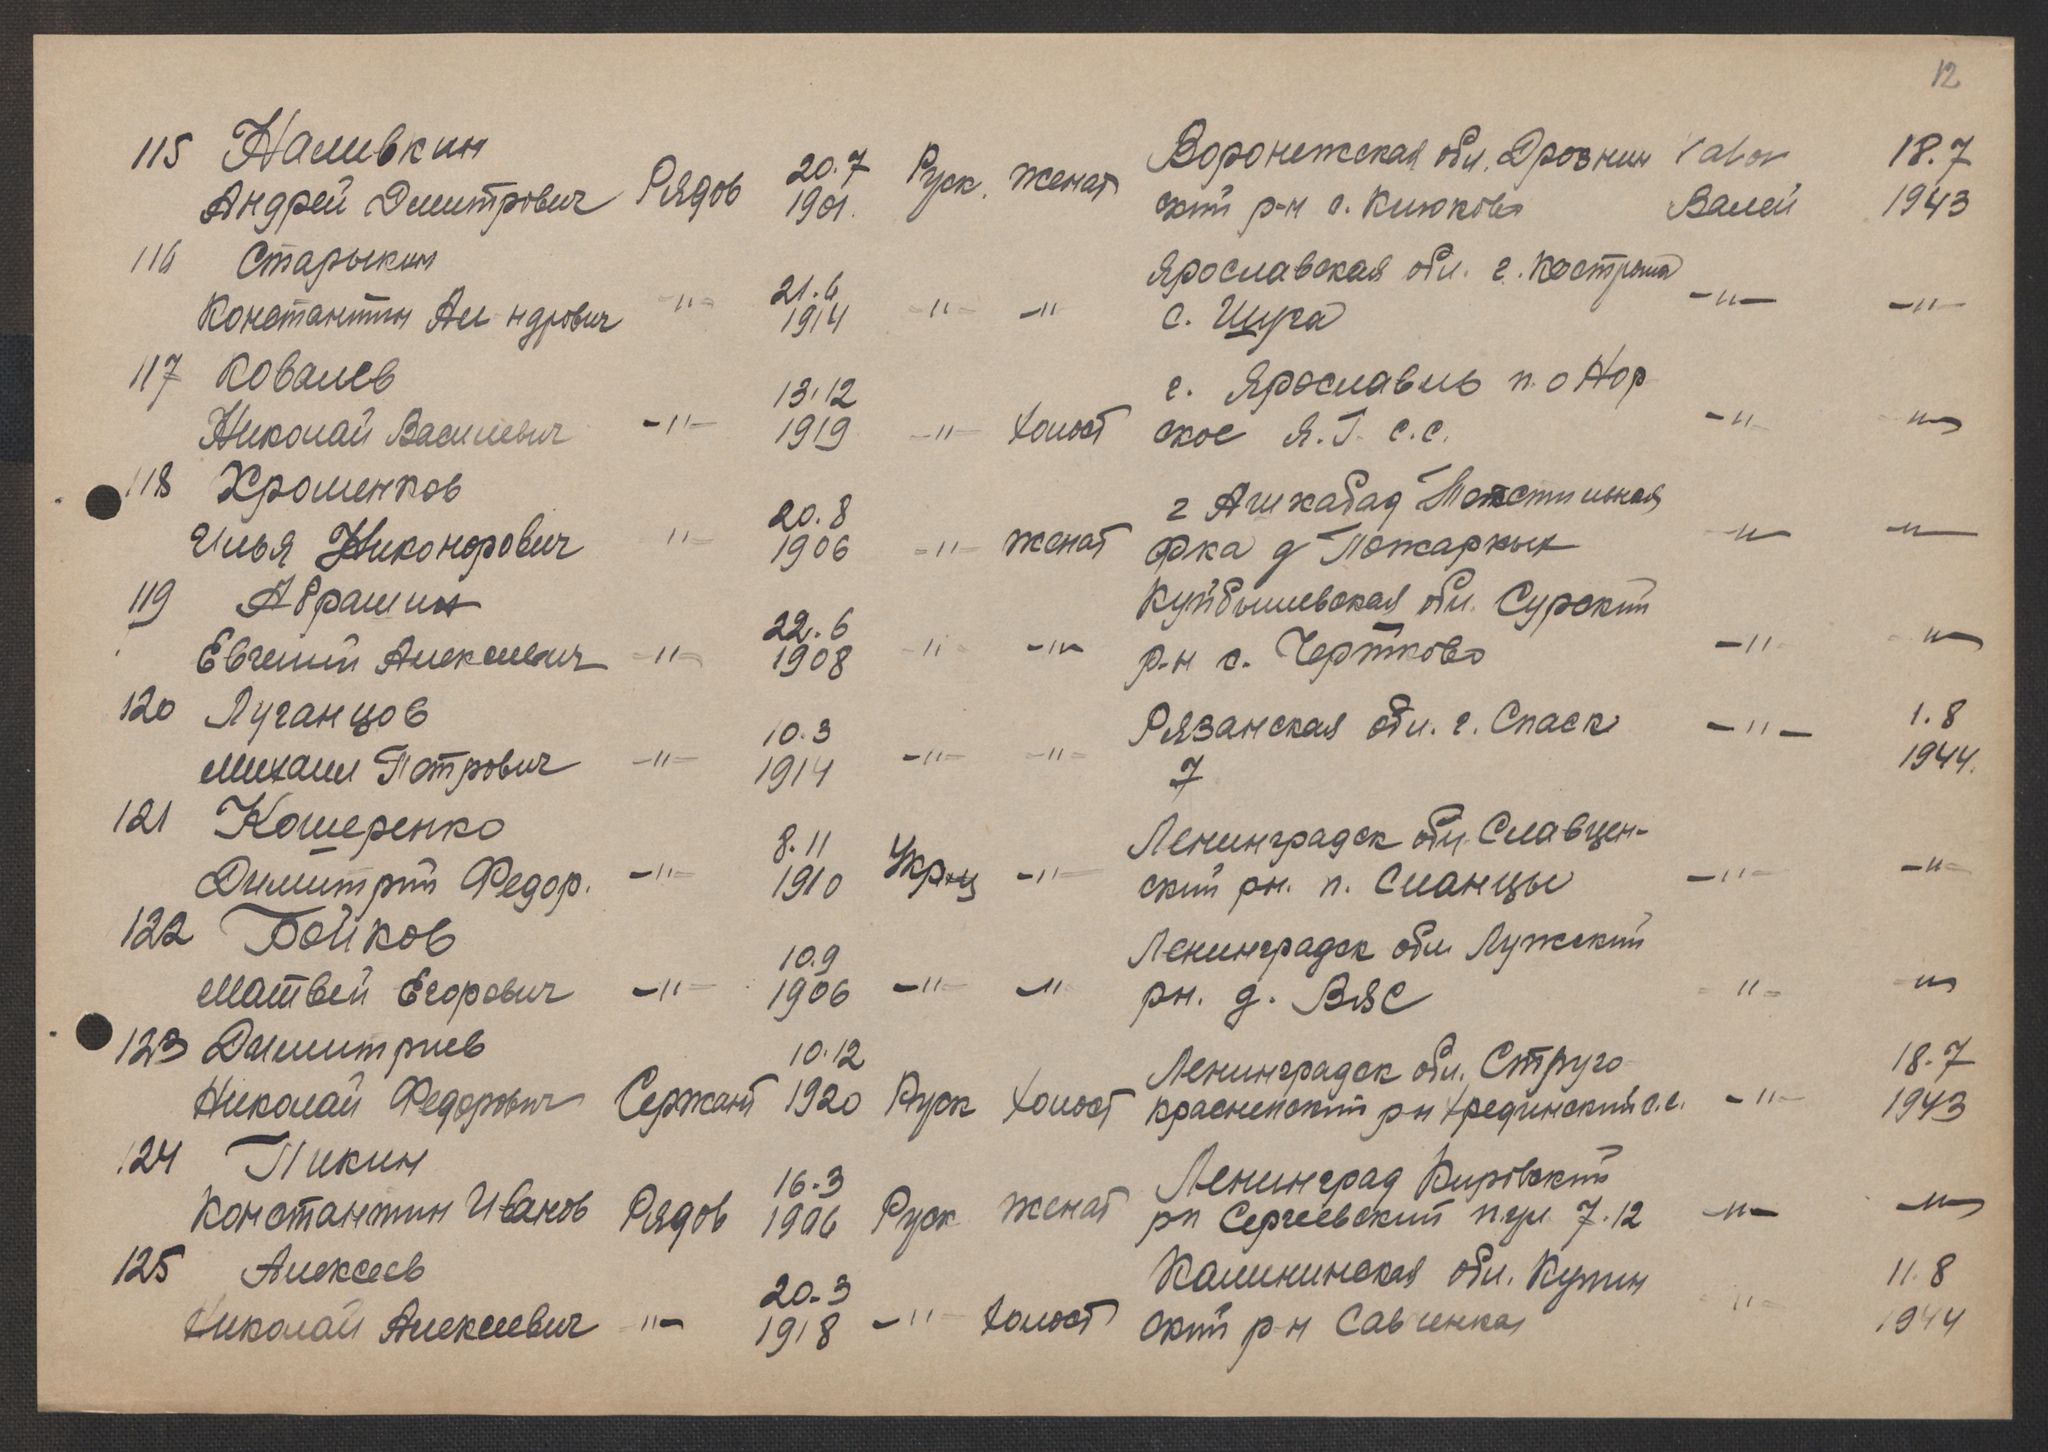 12
115 Наливкин
Андрей Дмитрович Рядов 20.7 1901. Руск. женат Воронежская обл. Дрознин
ский р-н с. Клюково Валей 18.7 1943
116 Старыкин
Константин Ал ндрович -"- 21.6 1914 -"- -"- Ярославская обл. г. Кострома
с. Щуга -"- -"-
117 Ковалев
Николай Василевич -"- 13.12 1919 -"- холост г. Ярославль п.о Нор
ское Я.Г. с.с. -"- -"-
118 Хроменков
Илья Никонорович -"- 20.8 1906 -"- женат г Ашхабад Текстильная
Фка д Пожарных -"- -"-
119 Аврашин
Евгений Алексеевич -"- 22.6 1908 -"- -"- Куйбышевская обл. Сурский
р-н с. Чертково -"- -"-
120 Луганцов
Михаил Петрович -"- 10.3 1914 -"- -"- Рязанская обл. г. Спаск
7 -"- 1.8 1944.
121 Кошеренко
Димитрий Федор. -"- 8.11 1910 Укр-ц -"- Ленинградск обл. Славцен-
ский рн. п. Сланцы -"- -"-
122 Бойков
Матвей Егорович -"- 10.9 1906 -"- -"- Ленинградск обл Лужский
рн. д. Вяс -"- -"-
123 Димитриев
Николай Федорович Сержант 10.12 1920 Руск холост Ленинградск обл. Струго
красненский рн Хрединский с.с. -"- 18.7 1943
124 Пикин
Константин Иванов Рядов 16.3 1906 Руск женат Ленинград Кировский
рн Сергиевский п.ул 7.12 -"- -"-
125 Алексеев
Николай Алексеевич -"- 20.3 1918 -"- холост Калининская обл. Купин
ский р-н Савченка -"- 11.8 1944